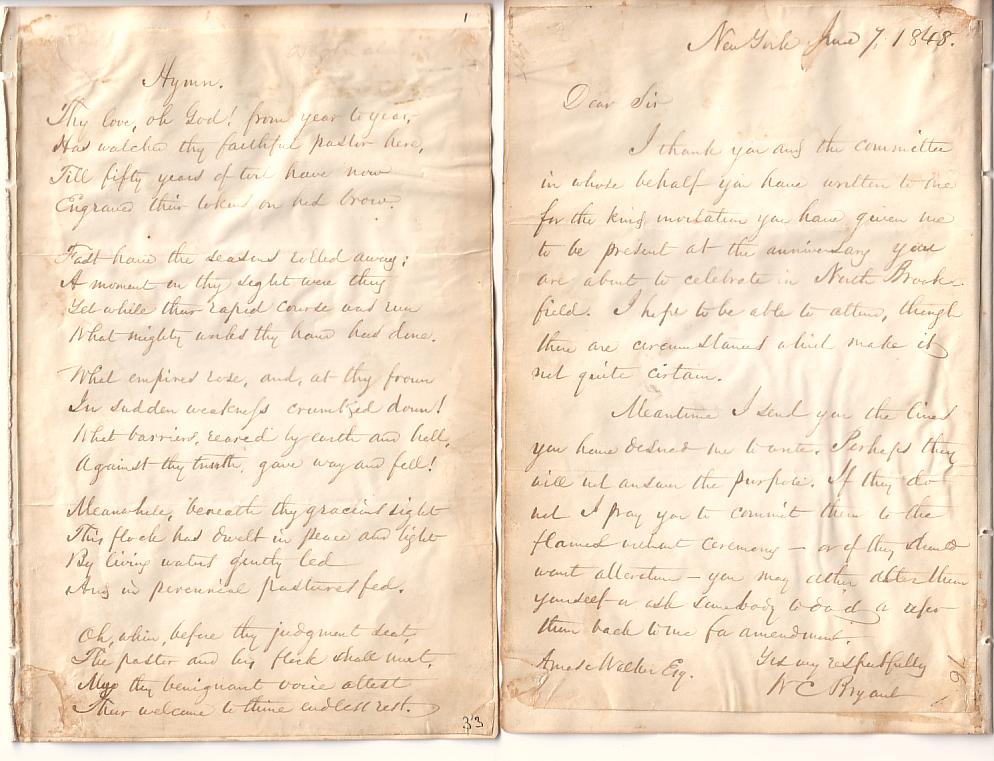 1
Hymn.
Thy love, oh God! from year to year,
Has watched thy faithful pastor here,
Till fifty years of toil have now
Engraved their token on his brow.
Fast have the seasons rolled away;
A moment in thy sight were they
Yet while their rapid course was run
What mighty works thy hand has done.
What empires rose, and, at thy frown
In sudden weakness crumbled down!
What barriers, reared by earth and hell,
Against thy truth, gave way and fell!
Meanwhile, beneath thy gracious sight
This flock has dwelt in peace and light
By living waters gently led
And in perennial pastures fed.
Oh, when, before thy judgment seat,
The pastor and his flock shall meet,
May thy benignant voice attest
Their welcome to thine endless rest.
33
New York June 7, 1848.
Dear Sir
I thank you and the committee
in whose behalf you have written to me
for the kind invitation you have given me
to be present at the anniversary you
are about to celebrate in North Brook-
field. I hope to be able to attend, though
there are circumstances which make it
not quite certain.
Meantime I send you the lines
you have desired me to write. Perhaps they
will not answer the purpose. If they do
not I pray you to commit them to the
flames without ceremony — or if they should
want alteration — you may either alter them
yourself or ask somebody to do it or refer
them back to me for amendment.
Yrs very respectfully
Amasa Walker Esq.
W C Bryant